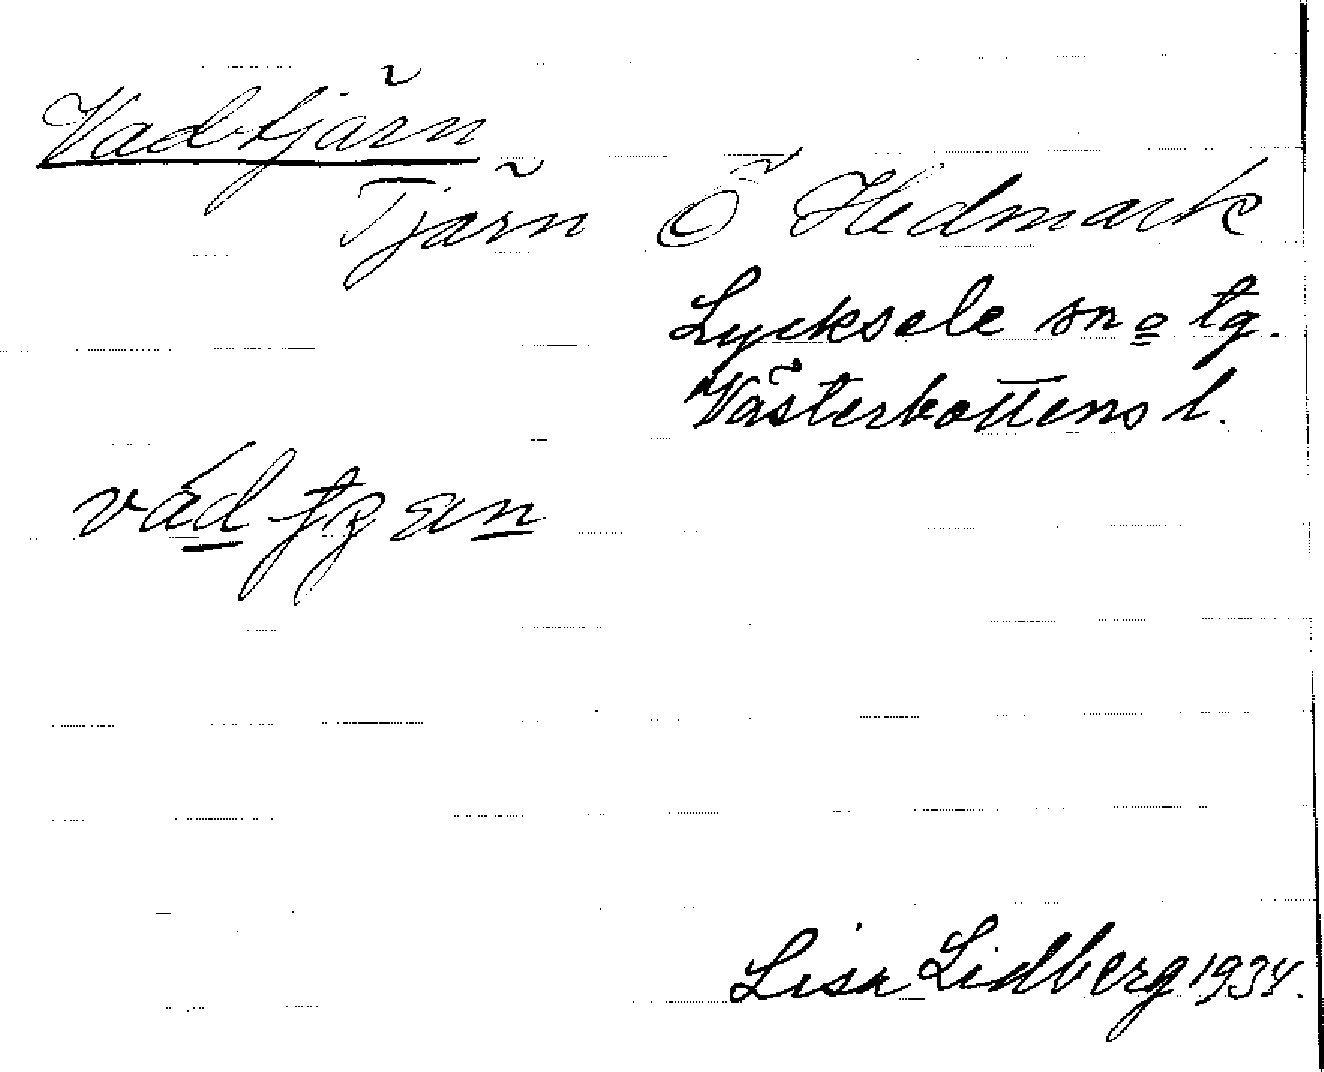 Vadtjärn
Tjärn Ö Hedmark
Lycksele sn o tg.
Västerbottens l.
Lisa Lidberg 1934.